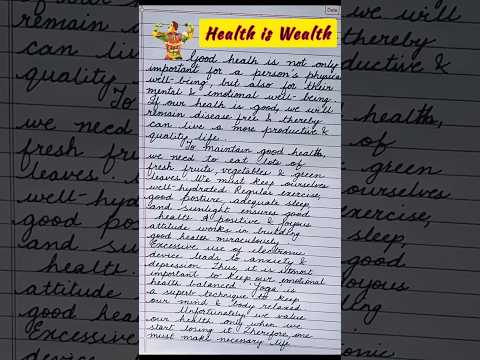 Date
Health is Wealth
Good healh is not only
important for a person's physical
well-being, but also for their
mental & emotional well-being
If our healh is good, we will
remain disease free & thereby
can live a more productive &
quality life.
To maintain good health,
we need to eat lots of
fresh fruits, vegetables & green
leaves. We must keep ourselves
well-hydrated. Regular exercise,
good posture, adequate sleep,
and sunlight ensures good
health. A positive & joyous
attitude works in building
good health miraculously.
Excessive use of electronic
device leads to anxiety &
depression. Thus, it is utmost
important to keep our emotional
health balanced. Yoga is
a superb technique to keep
our mind & body relaxed
Unfortunately we value
our health only when we
start losing it. Therefore, one
must make necessary life